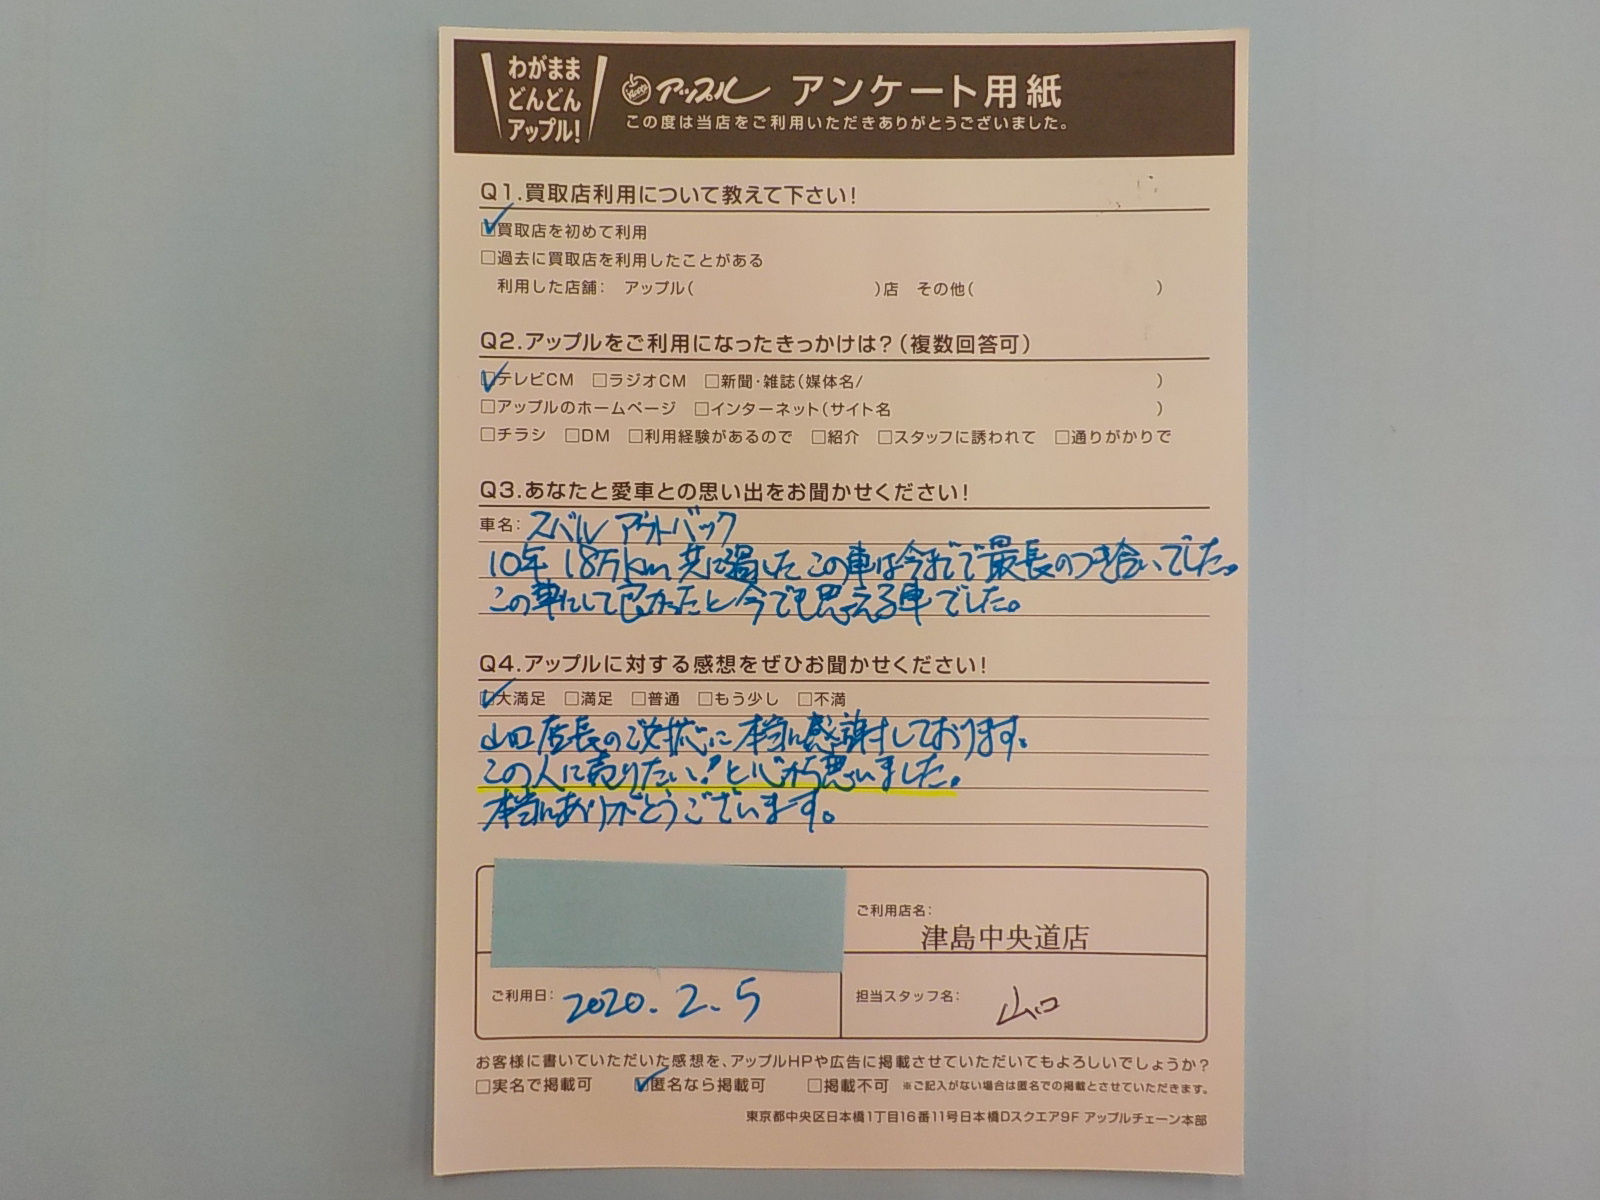 わがまま
どんどん
アップル!
アップル アンケート用紙
この度は当店をご利用いただきありがとうございました。
Q1.買取店利用について教えて下さい!
☑買取店を初めて利用
□過去に買取店を利用したことがある
利用した店舗: アップル( )店 その他( )
Q2.アップルをご利用になったきっかけは?(複数回答可)
☑テレビCM □ラジオCM □新聞・雑誌(媒体名/ )
□アップルのホームページ □インターネット(サイト名 )
□チラシ □DM □利用経験があるので □紹介 □スタッフに誘われて □通りがかりで
Q3.あなたと愛車との思い出をお聞かせください!
車名: スバル アウトバック
10年 18万km 共に過したこの車は今までで最長のつき合いでした。
この車にして良かったと今でも思える車でした。
Q4.アップルに対する感想をぜひお聞かせください!
☑大満足 □満足 □普通 □もう少し □不満
山口店長のご対応に本当に感謝しております。
この人に売りたい!と心から思いました。
本当にありがとうございます。
ご利用店名:
津島中央道店
ご利用日: 2020.2.5
担当スタッフ名: 山口
お客様に書いていただいた感想を、アップルHPや広告に掲載させていただいてもよろしいでしょうか?
□実名で掲載可 ☑匿名なら掲載可 □掲載不可 ※ご記入がない場合は匿名での掲載とさせていただきます。
東京都中央区日本橋1丁目16番11号日本橋Dスクエア9F アップルチェーン本部